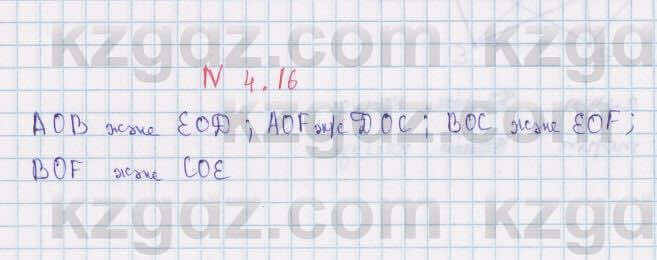 kzgdz.com kzgd
N 4.16
AOB және EOD; AOF ж/е DOC; BOC және EOF;
BOF және COE
kzgdz.com kzgd